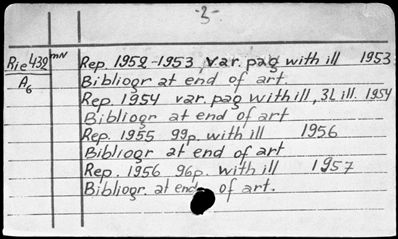 -3-
Rie439 mN Rep. 1952-1953 var. pag with ill 1953
A6 Bibliogr at end of art.
Rep. 1954 var. pag with ill, 3L ill. 1954
Bibliogr at end of art
Rep. 1955 99p. with ill 1956
Bibliogr at end of art
Rep. 1956 96p. with ill 1957
Bibliogr. at end of art.